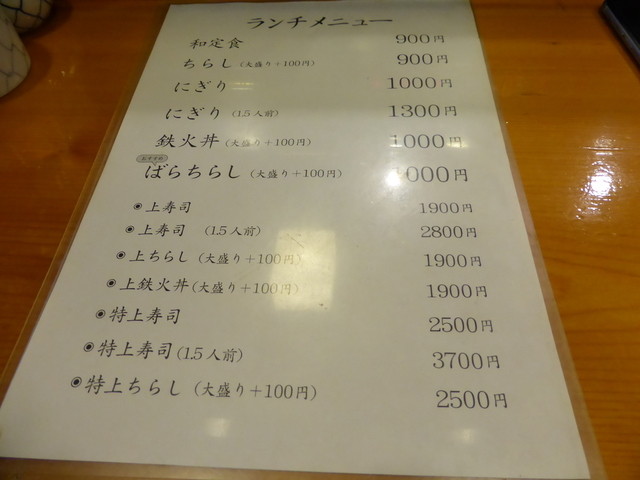 ランチメニュー
和定食 900円
ちらし (大盛り+100円) 900円
にぎり 1000円
にぎり (1.5人前) 1300円
鉄火丼 (大盛り+100円) 1000円
おすすめ
ばらちらし (大盛り+100円) 1000円
◉上寿司 1900円
◉上寿司 (1.5人前) 2800円
◉上ちらし (大盛り+100円) 1900円
◉上鉄火丼 (大盛り+100円) 1900円
◉特上寿司 2500円
◉特上寿司 (1.5人前) 3700円
◉特上ちらし (大盛り+100円) 2500円